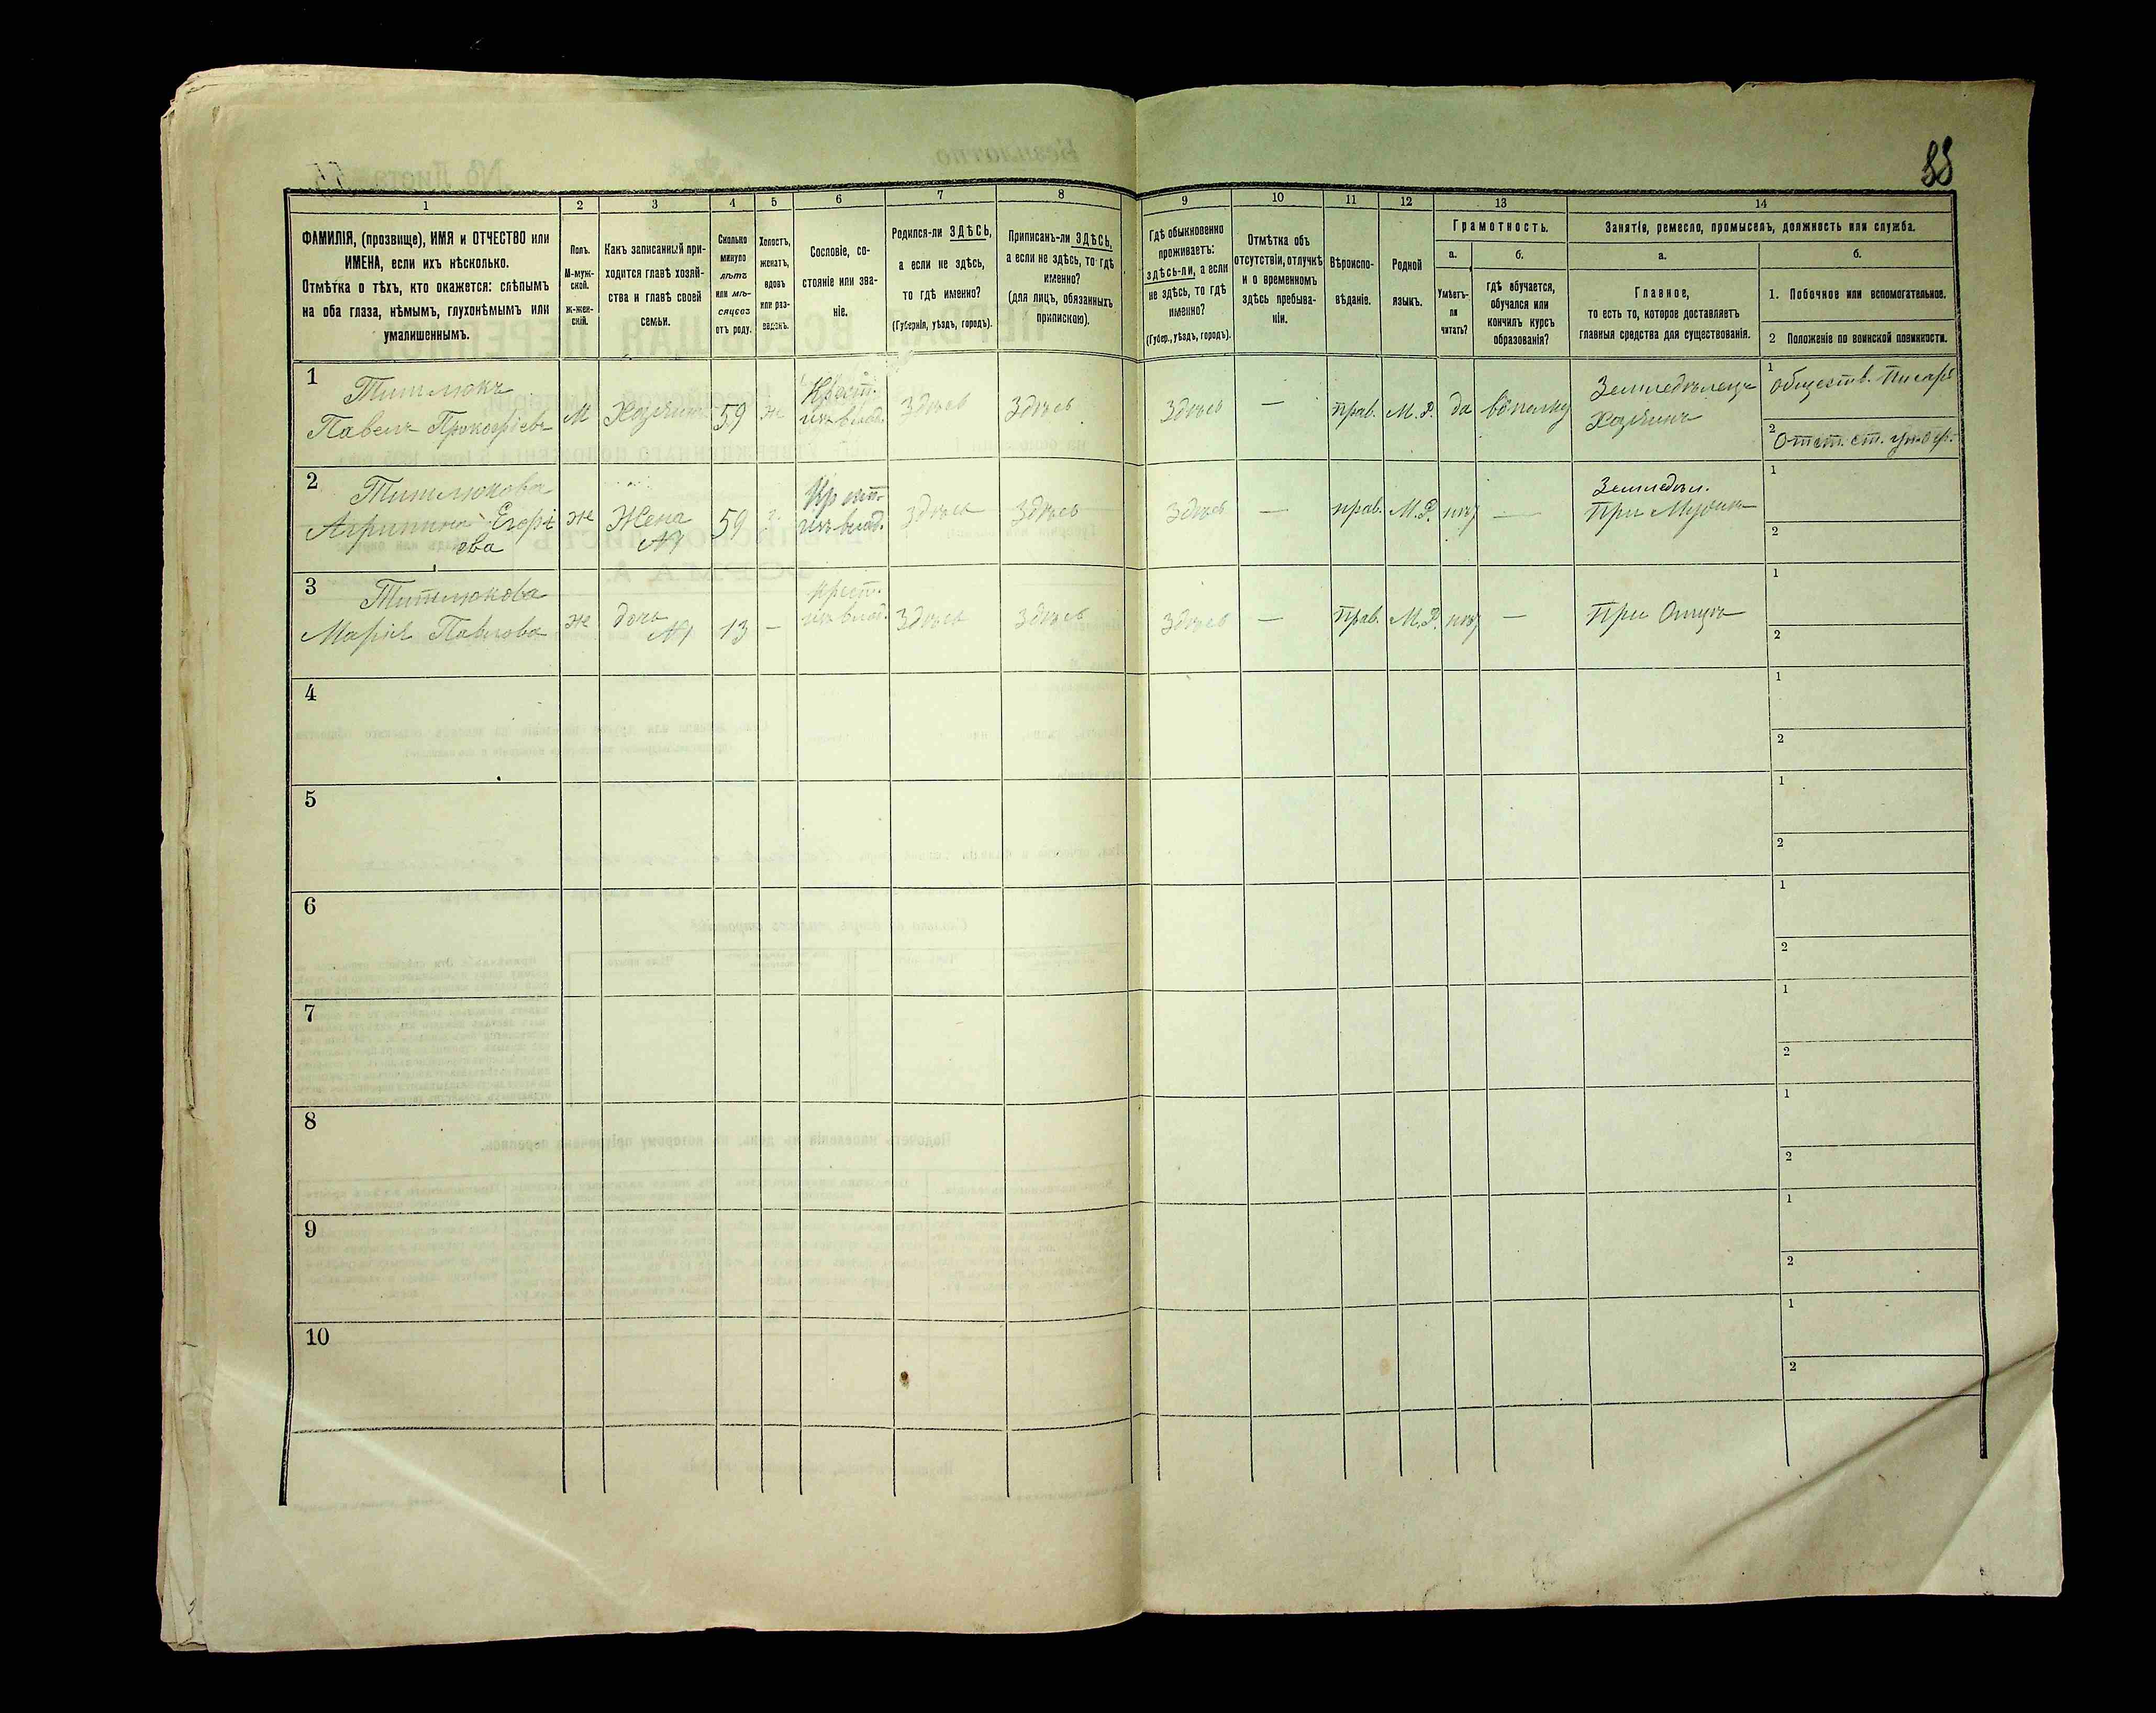 88
1
2
3
4
5
6
7
8
9
10
11
12
13
14
ФАМИЛІЯ, (прозвище), ИМЯ и ОТЧЕСТВО или
ИМЕНА, если ихъ нѣсколько.
Отмѣтка о тѣхъ, кто окажется: слѣпымъ
на оба глаза, нѣмымъ, глухонѣмымъ или
умалишеннымъ.
Полъ.
М-муж-
ской.
Ж-жен-
скій.
Какъ записанный при-
ходится главѣ хозяй-
ства и главѣ своей
семьи.
Сколько
минуло
лѣтъ
или мѣ-
сяцевъ
отъ роду.
Холостъ,
женатъ,
вдовъ
или раз-
веденъ.
Сословіе, со-
стояніе или зва-
ніе.
Родился-ли ЗДѢСЬ,
а если не здѣсь,
то гдѣ именно?
(Губернія, уѣздъ, городъ).
Приписанъ-ли ЗДѢСЬ,
а если не здѣсь, то гдѣ
именно?
(для лицъ, обязанныхъ
припискою).
Гдѣ обыкновенно
проживаетъ:
здѣсь-ли, а если
не здѣсь, то гдѣ
именно?
(Губер., уѣздъ, городъ).
Отмѣтка объ
отсутствіи, отлучкѣ
и о временномъ
здѣсь пребыва-
ніи.
Вѣроиспо-
вѣданіе.
Родной
языкъ.
Грамотность.
а.
Умѣетъ-
ли
читать?
б.
гдѣ обучается,
обучался или
кончилъ курсъ
образованія?
Занятіе, ремесло, промыселъ, должность или служба.
а.
Главное,
то есть то, которое доставляетъ
главныя средства для существованія.
б.
1. Побочное или вспомогательное.
2 Положеніе по воинской повинности.
1
Павелъ Прокофіевъ
М
Хозяинъ
59
ж
Крест.
изъ влад.
Здѣсь
Здѣсь
Здѣсь
—
прав.
М. Р.
да
въ полку
Земледѣлецъ
Хозяинъ
1
Обществ. Писарь
2
Отст. ст. ун. оф.
2
Агрипина Егорі
ева
ж
Жена
№1
59
Крест.
изъ влад.
Здѣсь
Здѣсь
Здѣсь
—
прав.
М. Р.
нѣт
—
Земледѣл.
При Мужѣ
1
2
3
Марія Павлова
ж
дочь
№1
13
—
крест.
изъ влад.
Здѣсь
Здѣсь
Здѣсь
—
прав.
М. Р.
нѣт
—
При Отцѣ
1
2
4
1
2
5
1
2
6
1
2
7
1
2
8
1
2
9
1
2
10
1
2